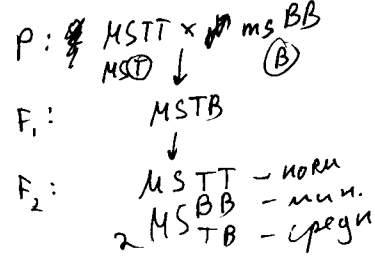 P: MSTT × ms BB
MS T B
F₁: MSTB
F₂: MSTT - норм
MS BB - мин.
2 TB - средн